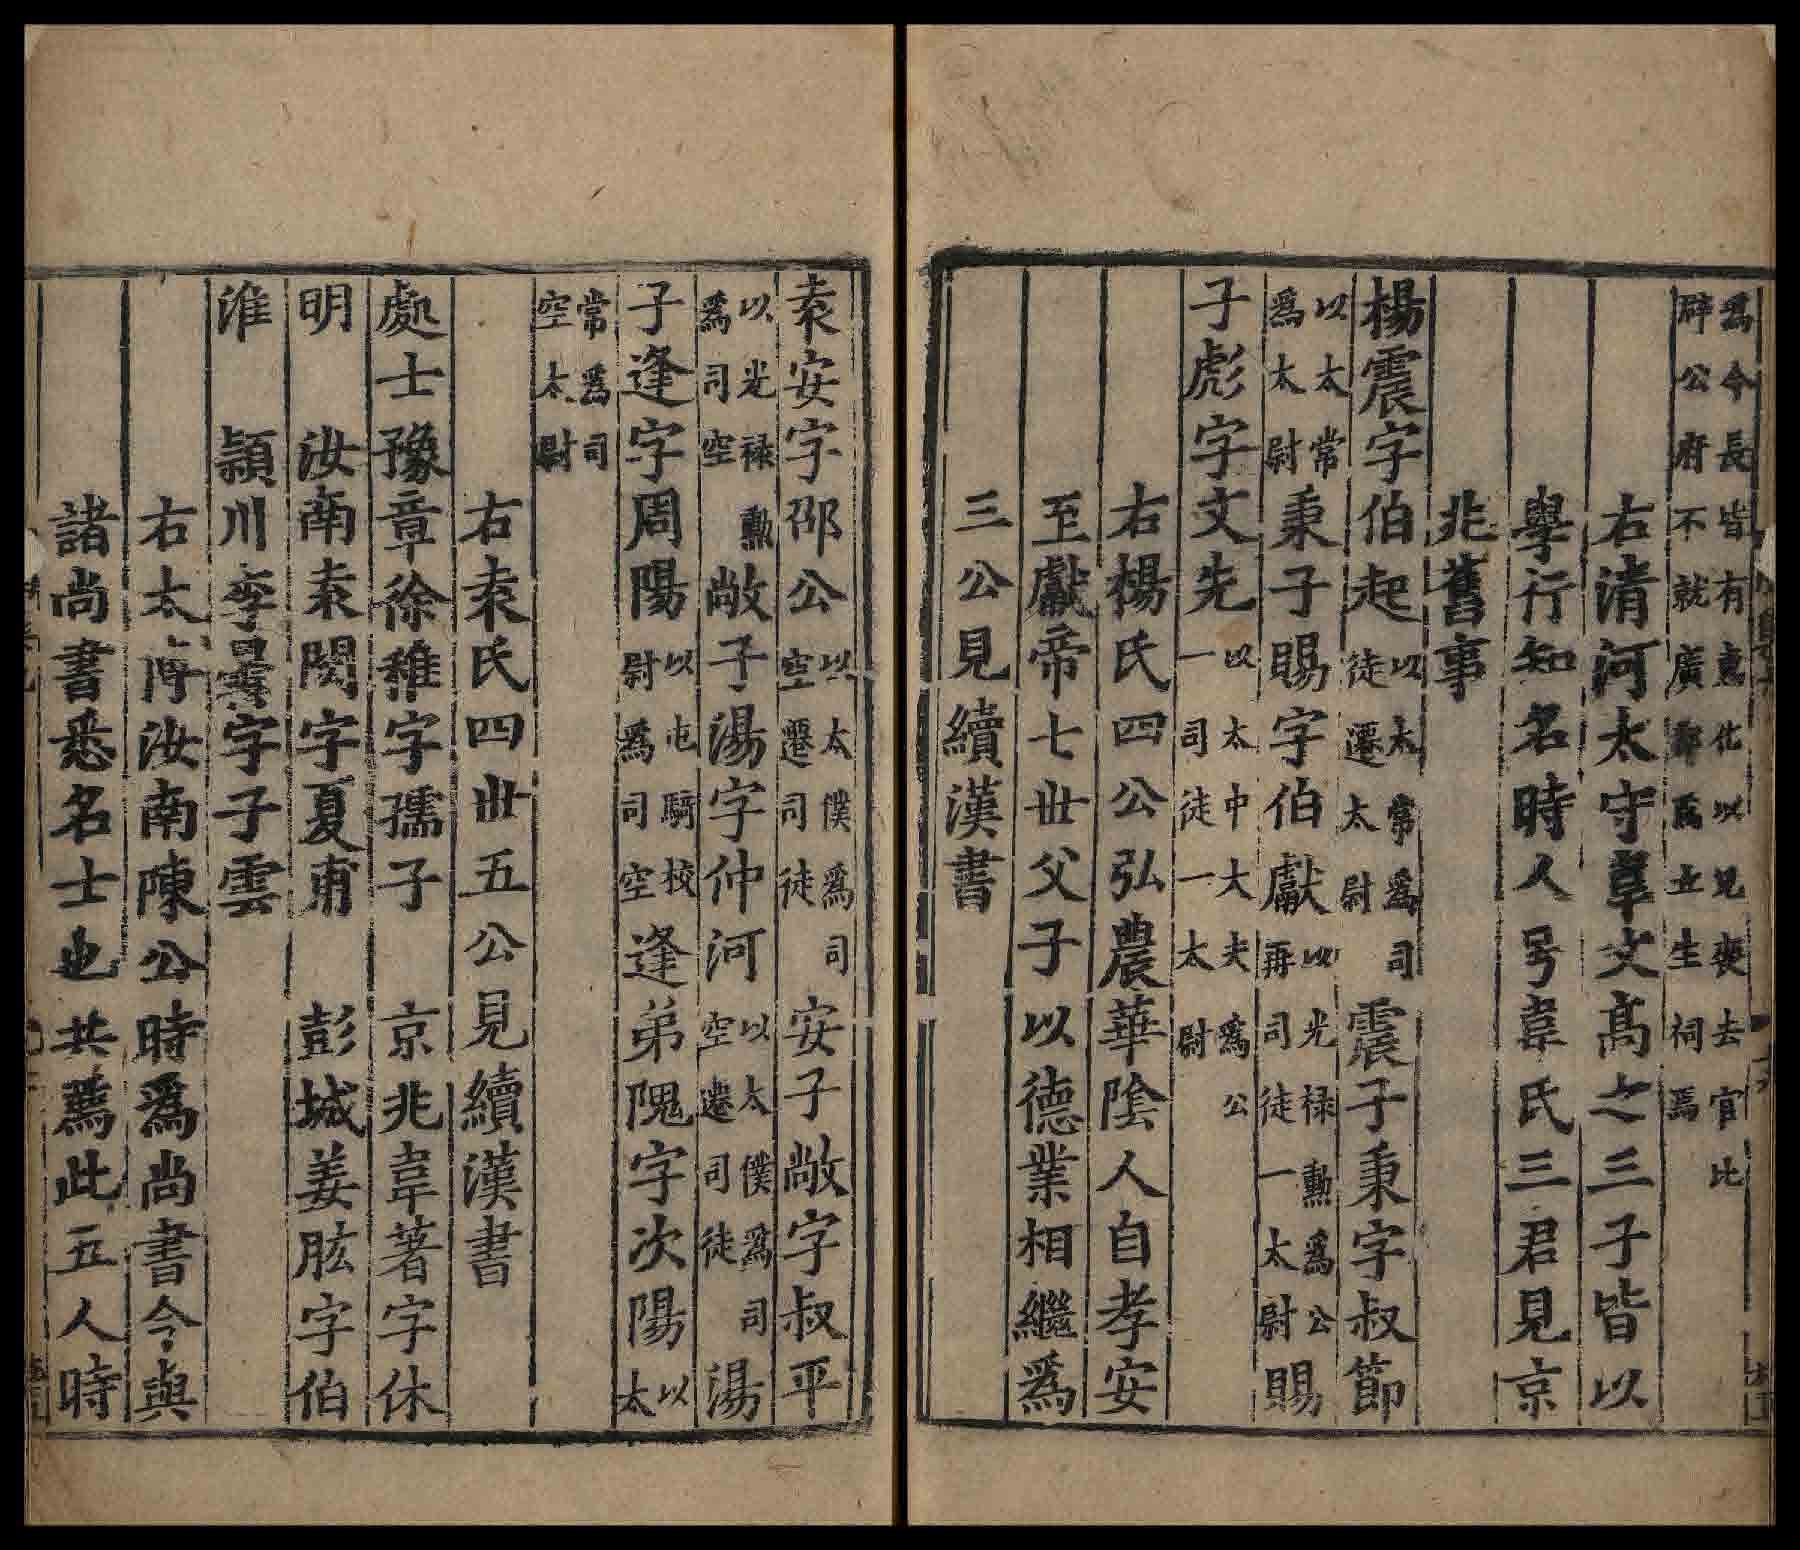 爲令長皆有惠化以兄喪去官比
辟公府不就廣都爲立生祠焉
右清河太守韋文高之三子皆以
學行知名時人号韋氏三君見京
兆舊事
楊震字伯起以太常爲司徒遷太尉震子秉字叔節
以太常爲太尉秉子賜字伯獻以光禄勲爲公再司徒一太尉賜
子彪字文先以太中大夫爲公一司徒一太尉
右楊氏四公弘農華陰人自孝安
至獻帝七世父子以德業相繼爲
三公見續漢書
袁安字邵公以太僕爲司空遷司徒安子敞字叔平
以光禄勲爲司空敞子湯字仲河以太僕爲司空遷司徒湯
子逢字周陽以屯騎校尉爲司空逢弟隗字次陽以太
常爲司空太尉
右袁氏四世五公見續漢書
處士豫章徐稚字孺子 京兆韋著字休
明 汝南袁閎字夏甫 彭城姜肱字伯
淮 潁川李曇字子雲
右太傅汝南陳公時爲尚書令與
諸尚書悉名士也共薦此五人時